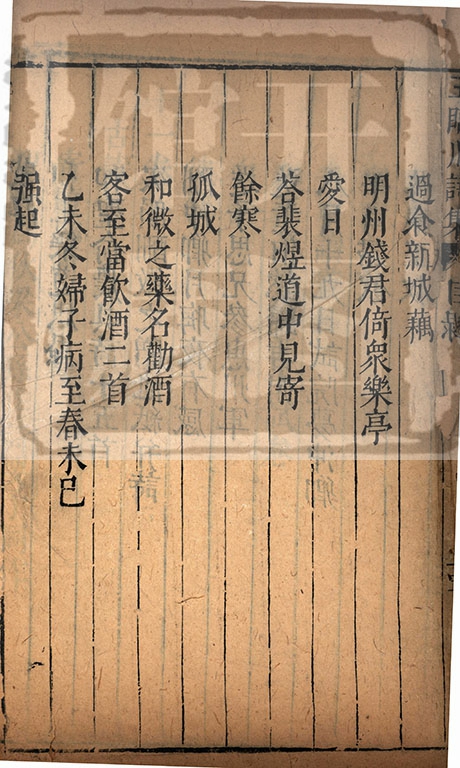 過食新城藕
明州錢君倚衆樂亭
愛日
荅裴煜道中見寄
餘寒
孤城
和微之藥名勸酒
客至當飲酒二首
乙未冬婦子病至春未已
强起